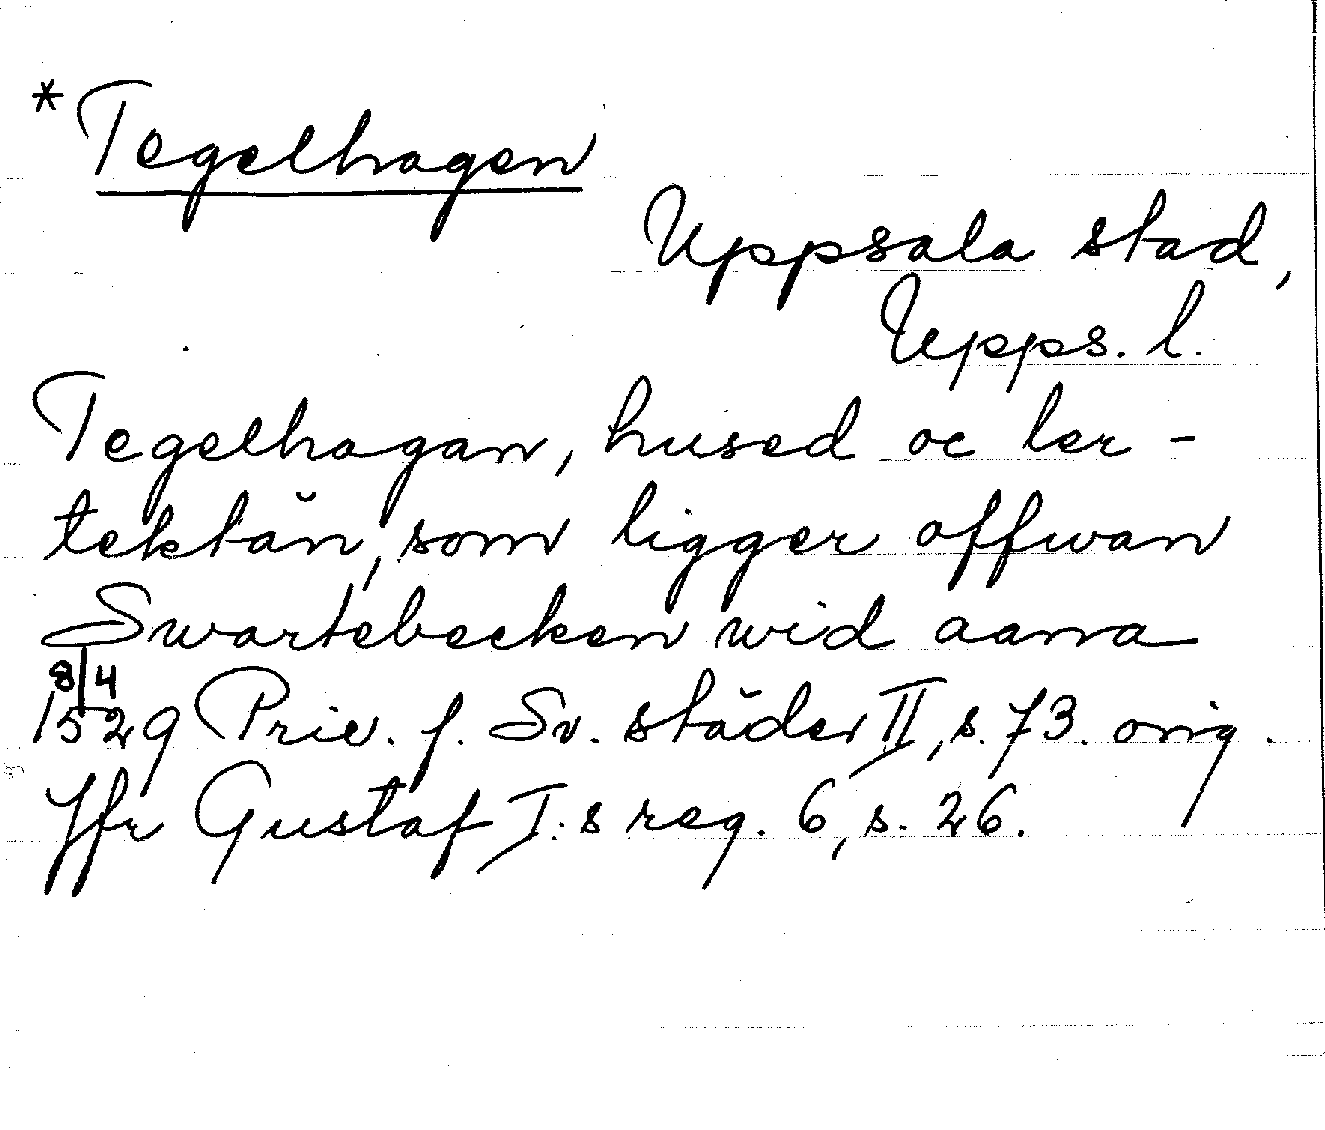 *Tegelhagen
Uppsala stad,
Upps. l.
Tegelhagan, hused oc ler-
tektän, som ligger offwan
Swartebecken wid aanna
8/4
1529 Priv. f. Sv. städer II, s. 73. orig.
Jfr Gustaf I:s reg. 6, s. 26.